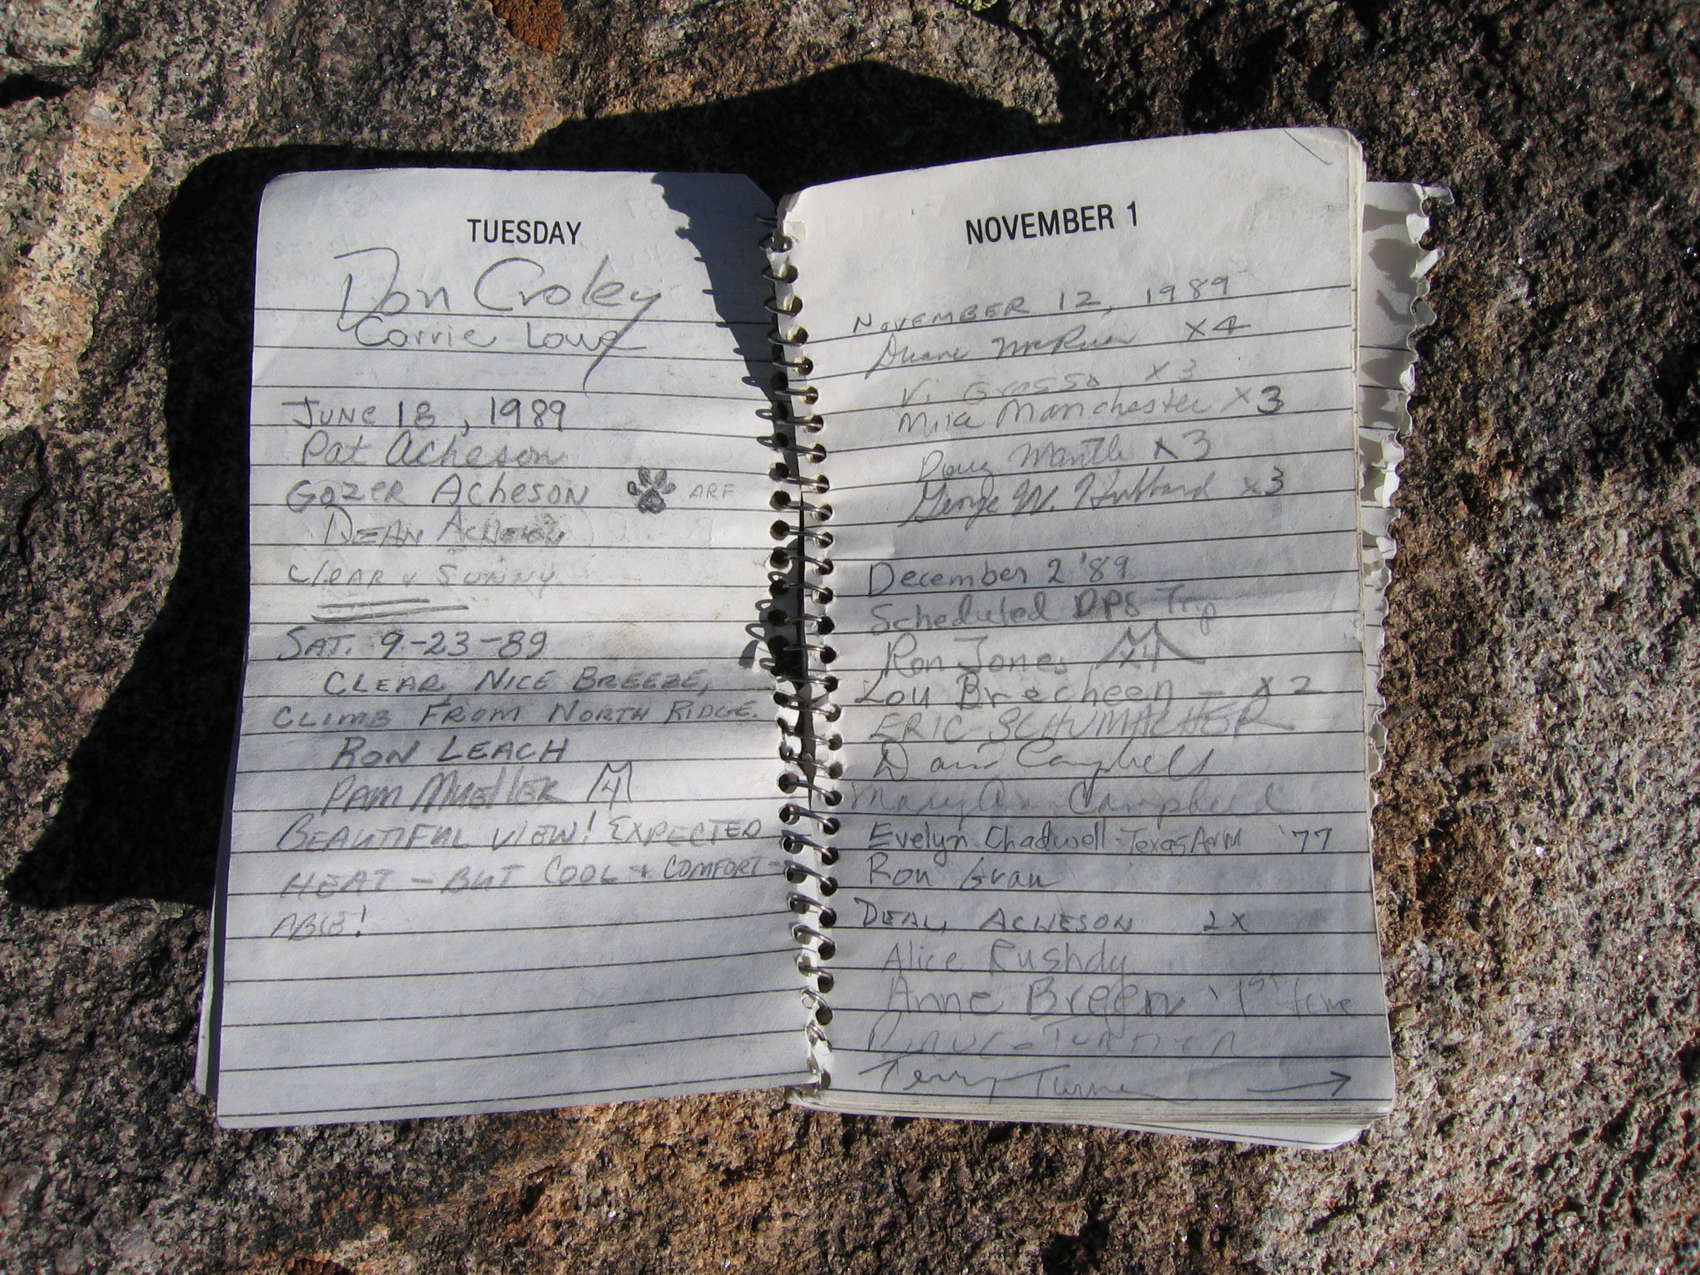 TUESDAY
Don Croley
Corrie Lowe
JUNE 18, 1989
Pat Acheson
GOZER ACHESON ARF
DEAN ACHESON
CLEAR & SUNNY
SAT. 9-23-89
CLEAR, NICE BREEZE,
CLIMB FROM NORTH RIDGE.
RON LEACH
PAM MUELLER 4
BEAUTIFUL VIEW! EXPECTED
HEAT - BUT COOL & COMFORT-
ABLE!
NOVEMBER 1
NOVEMBER 12, 1989
Duane McRuer X4
Vi Grasso X3
Mike Manchester X3
Doug Mantle X3
George W. Hubbard X3
December 2 '89
Scheduled DPS Trip
Ron Jones X4
Lou Brecheen - X2
ERIC SCHUMACHER
David Campbell
Mary Ann Campbell
Evelyn Chadwell - Texas A&M '77
Ron Grau
DEAN ACHESON 2X
Alice Rushdy
Anne Breen '1st time
Turner
Terry Turner →